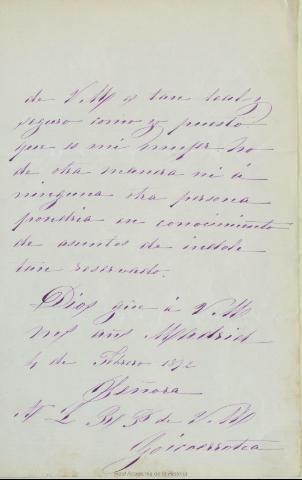 de V.M es tan leal y
seguro como yo puesto
que es mi mujer No
de otra manera ni á
ninguna otra persona
pondria en conocimiento
de asuntos de indole
tan reservado.
Dios gue á V. M
ms añs Madrid
4 de Febrero 1872
Señora
A L R P de V. M
Goicorrotea
Real Academia de la Historia